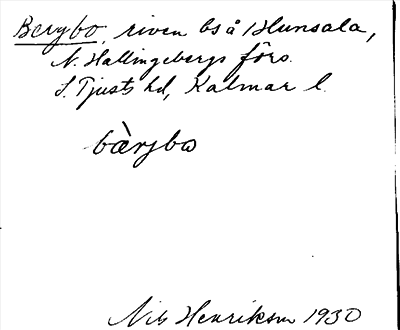 Bergbo, riven bs å Hunsala,
N. Hallingebergs förs.
S. Tjusts hd, Kalmar l.
bæ̀rjbo
Nils Henrikson 1930